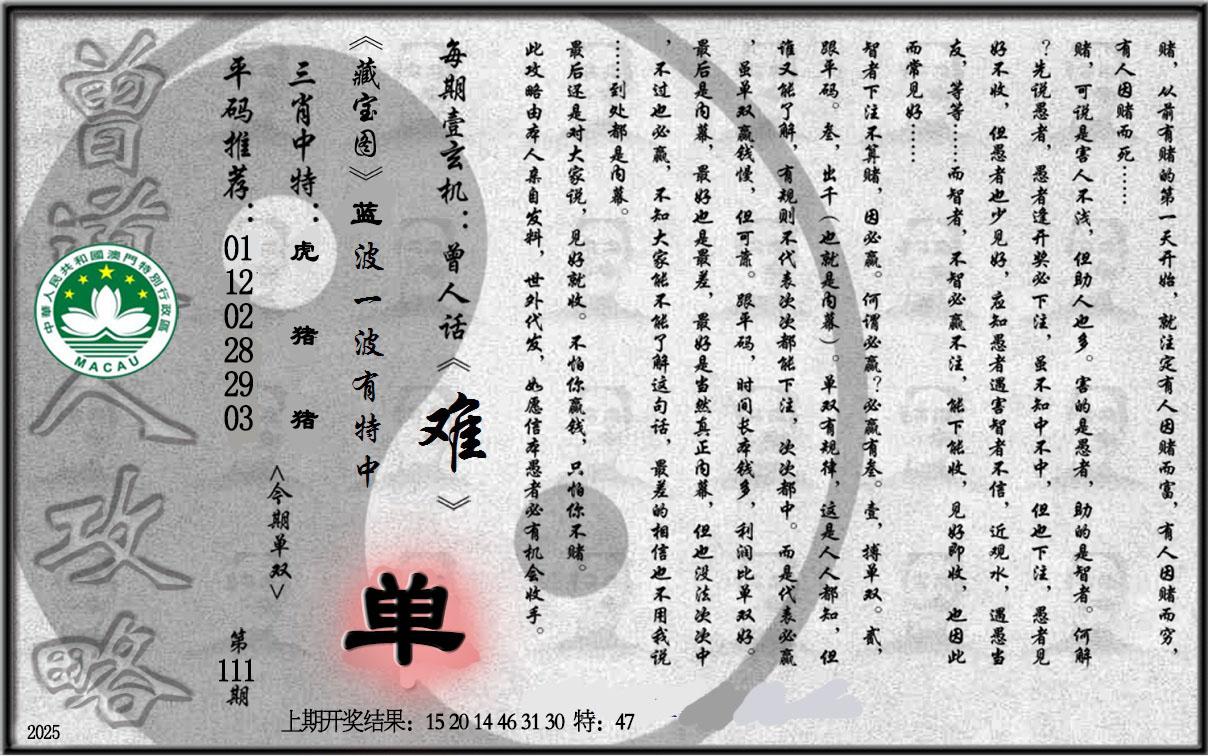 赌，从前有赌的第一天开始，就注定有人因赌而富，有人因赌而穷，
有人因赌而死……
赌，可说是害人不浅，但助人也多。害的是愚者，助的是智者。何解
？先说愚者，愚者逢开奖必下注，虽不知中不中，但也下注，愚者见
好不收，但愚者也少见好，应知愚者遇害智者不信，近观水，遇愚当
友，等等……而智者，不智必赢不注，能下能收，见好即收，也因此
而常见好……
智者下注不算赌，因必赢。何谓必赢？必赢有叁。壹，搏单双。贰，
跟平码。叁，出千（也就是内幕）。单双有规律，这是人人都知，但
谁又能了解，有规则不代表次次都能下注，次次都中。而是代表必赢
，虽单双赢钱慢，但可靠。跟平码，时间长本钱多，利润比单双好。
最后是内幕，最好也是最差，最好是当然真正内幕，但也没法次次中
，不过也必赢，不知大家能不能了解这句话，最差的相信也不用我说
……到处都是内幕。
最后还是对大家说，见好就收。不怕你赢钱，只怕你不赌。
此攻略由本人亲自发料，世外代发，如愿信本愚者必有机会收手。
每期壹玄机：曾人话《难》
《藏宝图》蓝波一波有特中
单
三肖中特：虎 猪 猪
<今期单双>
平码推荐：01 12 02 28 29 03
第111期
曾道人攻略
中華人民共和國澳門特別行政區
MACAU
上期开奖结果：15 20 14 46 31 30 特：47
2025